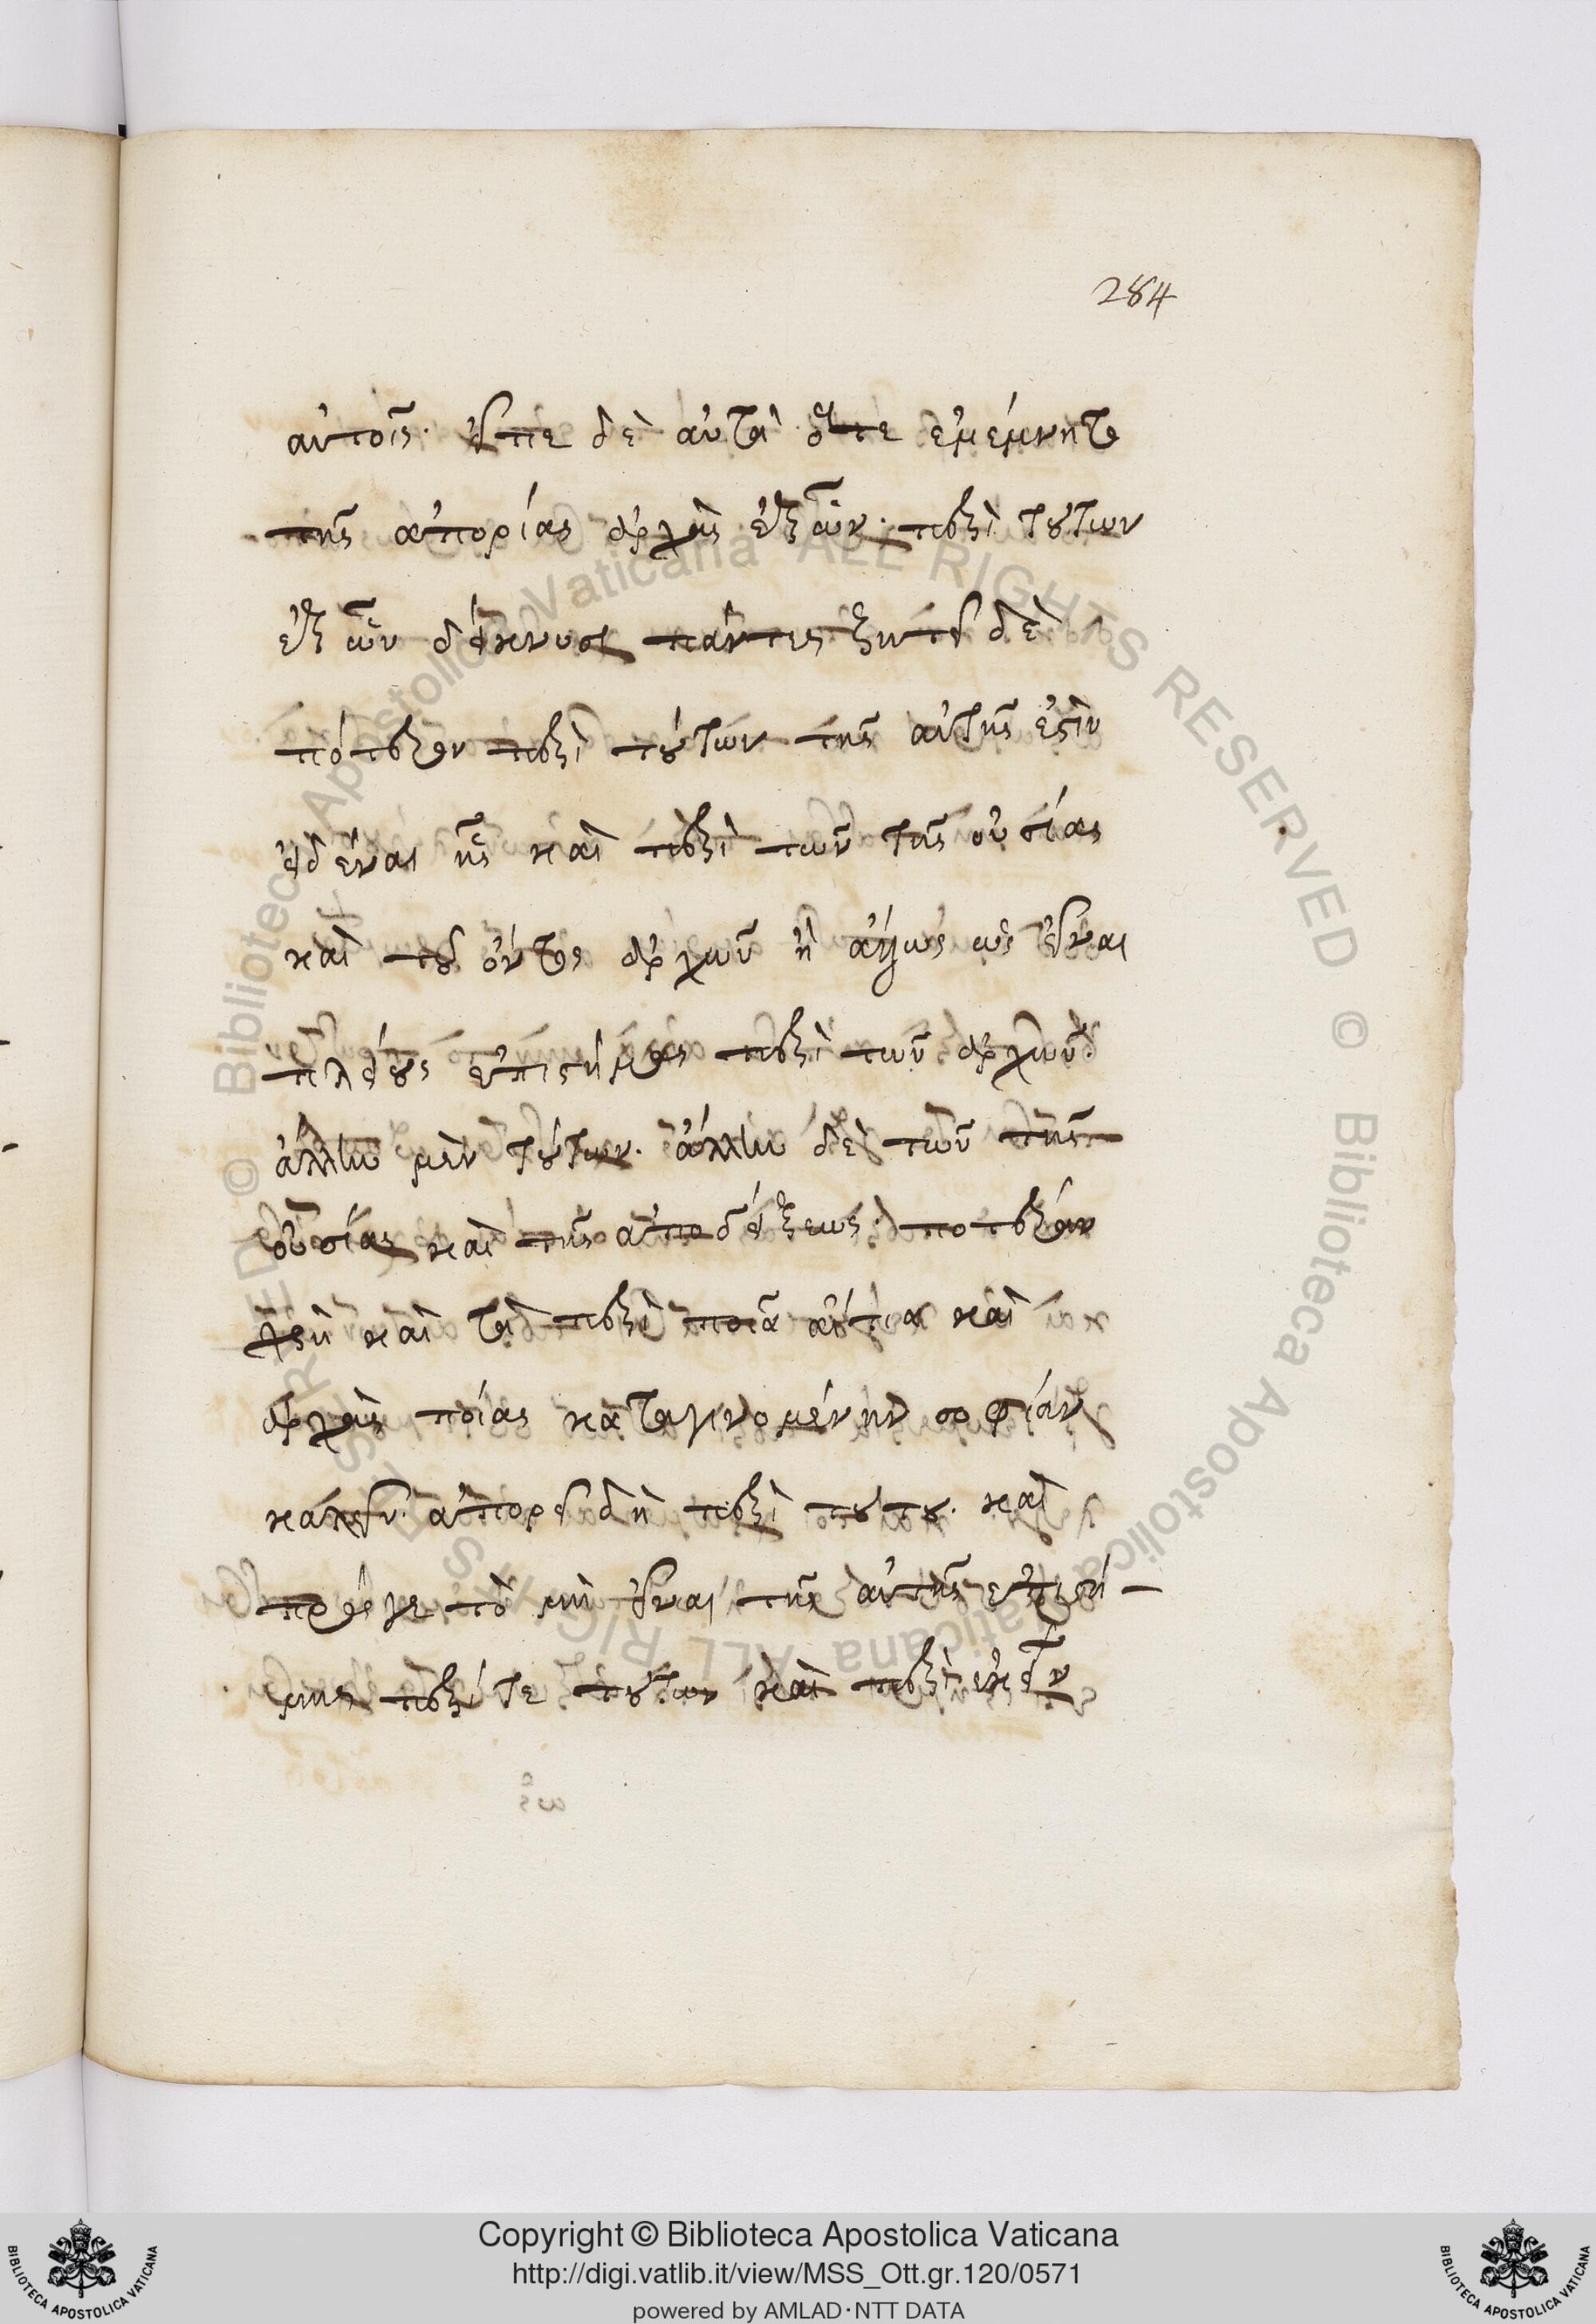 284
αὐτοῖς. εἶπε δὲ αὐτὰ ὅτε ἐμέμνητο
τῆς ἀπορίας ἀρχὰς ἐξ ὧν. περὶ τούτων
ἐξ ὧν δείκνυσι πάντες ζητεῖ δὲ
πότερον περὶ τούτων τῆς αὐτῆς ἐστὶν
εἰδέναι ἧς καὶ περὶ τῶν τῆς οὐσίας
καὶ τοῦ ὄντος ἀρχῶν ἢ ἄλλως ὡς εἶναι
πλείους ἐπιστήμας περὶ τῶν ἀρχῶν
ἄλλην μὲν τούτων. ἄλλην δὲ τῶν τῆς
οὐσίας καὶ τῆς ἀποδείξεως. ποτέραν
χρὴ καὶ τὰ περὶ ποῖα αἴτια καὶ
ἀρχὰς ποίας καταγινομένην σοφίαν
καλεῖν. ἀπορεῖ δὴ περὶ τούτου. καὶ
πρός γε τὸ μὴ εἶναι τῆς αὐτῆς ἐπιστή-
μης περί τε τούτων καὶ περὶ ἐκείνων
Copyright © Biblioteca Apostolica Vaticana
http://digi.vatlib.it/view/MSS_Ott.gr.120/0571
powered by AMLAD·NTT DATA
BIBLIOTECA APOSTOLICA VATICANA
BIBLIOTECA APOSTOLICA VATICANA
© Biblioteca Apostolica Vaticana ALL RIGHTS RESERVED © Biblioteca Apostolica Vaticana ALL RIGHTS RESERVED